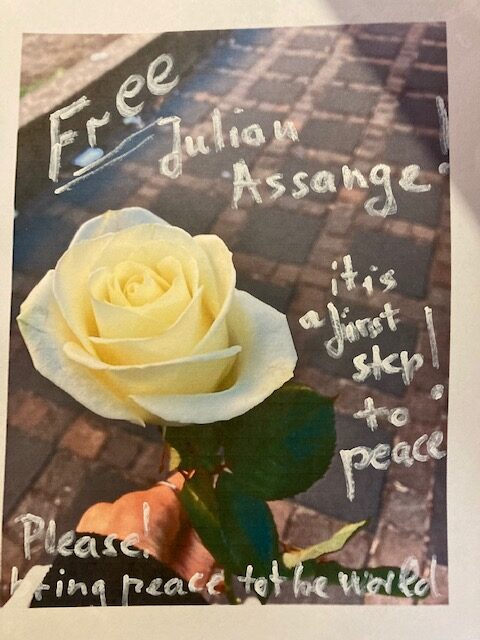 Free
Julian
Assange!
it is
a first
step!
to
peace
Please!
bring peace to the world